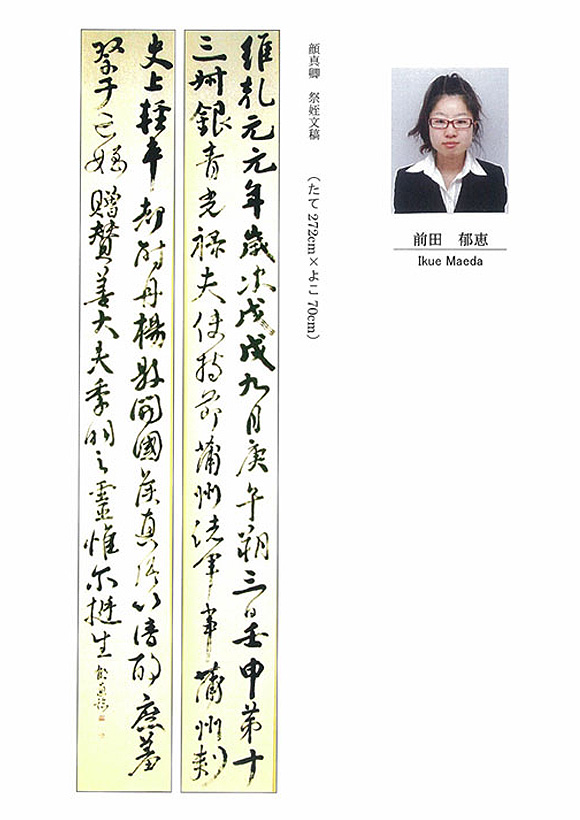 前田 郁恵
Ikue Maeda
顔真卿 祭姪文稿 (たて 272cm×よこ 70cm)
維乾元元年歳次戊戌九月庚午朔三日壬申第十
三叔銀青光禄夫使持節蒲州諸軍事蒲州刺
史上軽車都尉丹楊縣開國侯真卿以清酌庶羞
祭于亡姪贈賛善大夫季明之靈惟尓挺生